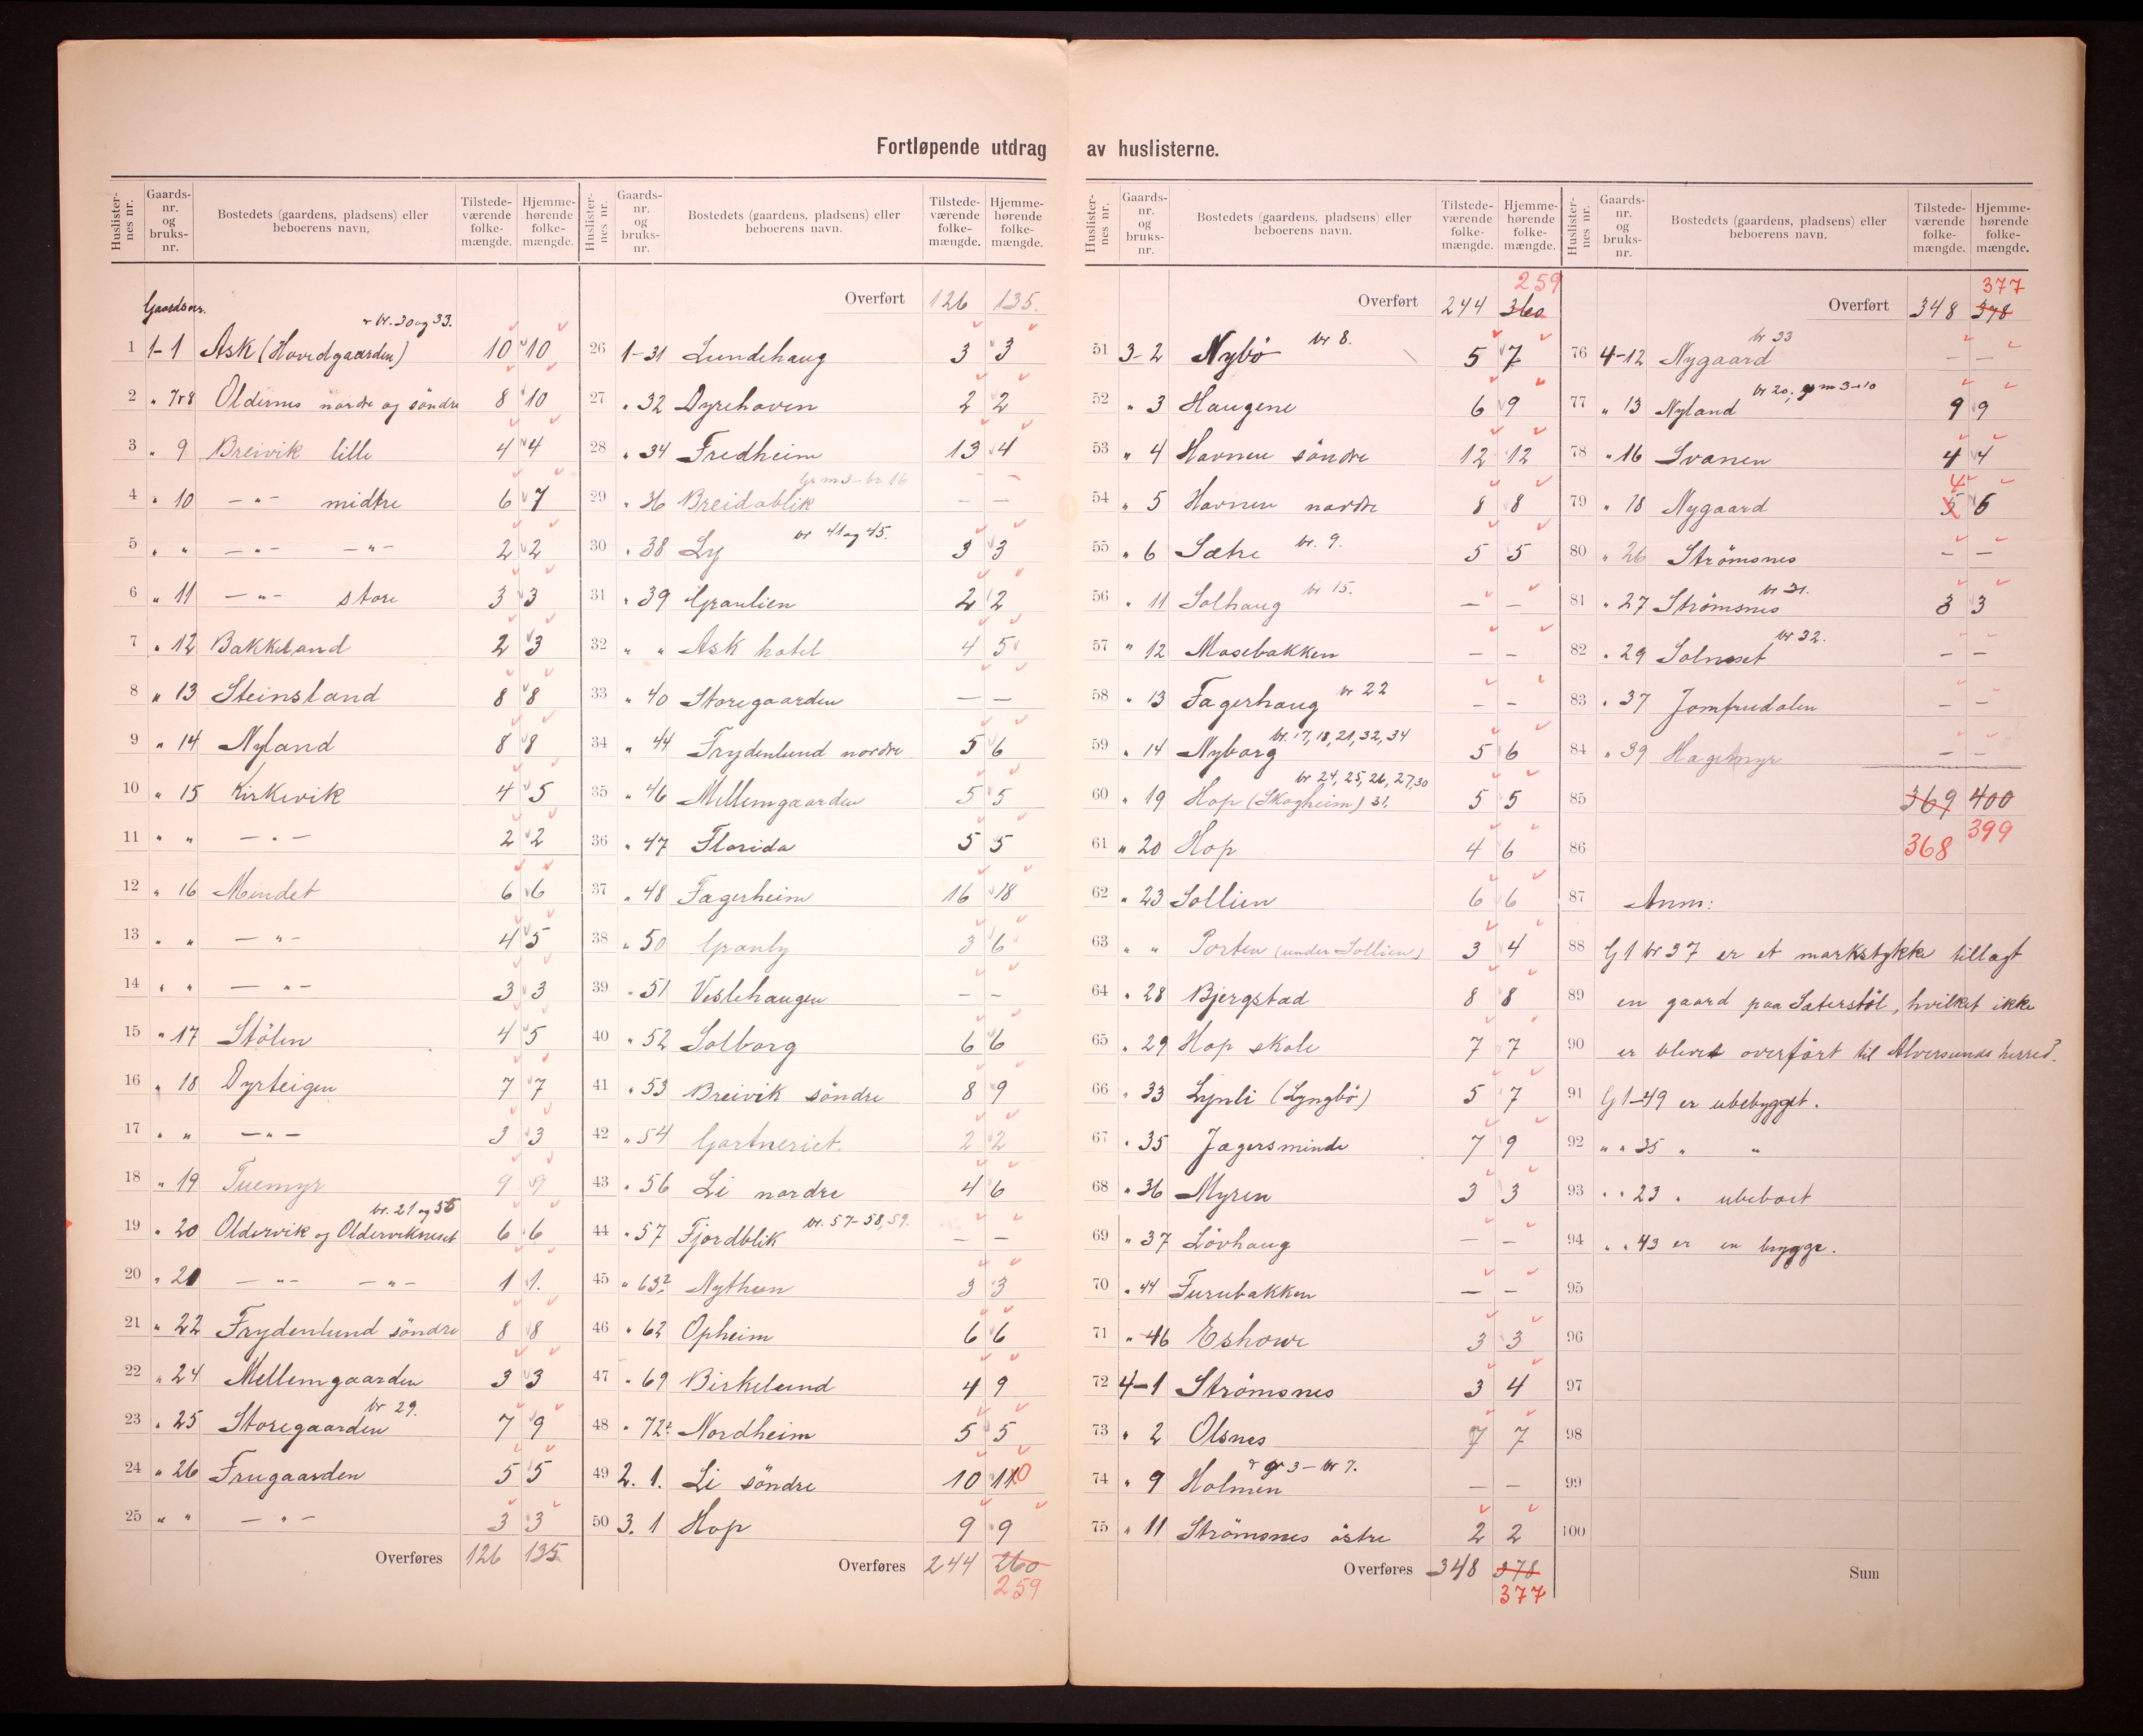 Fortløpende utdrag av huslisterne.
Huslisternes nr. Gaardsnr. og bruksnr. Bostedets (gaardens, pladsens) eller beboerens navn. Tilstedeværende folkemængde. Hjemmehørende folkemængde.
Gaardsnr.
br. 30 og 33.
1 1-1 Ask (Hovedgaarden) 10 10
2 " 7+8 Oldernes nordre og søndre 8 10
3 " 9 Breivik lille 4 4
4 " 10 — " — midtre 6 7
5 " " — " — — " — 2 2
6 " 11 — " — store 3 3
7 " 12 Bakkeland 2 3
8 " 13 Steinsland 8 8
9 " 14 Nyland 8 8
10 " 15 Kirkevik 4 5
11 " " — " — 2 2
12 " 16 Mindet 6 6
13 " " — " — 4 5
14 " " — " — 3 3
15 " 17 Stölen 4 5
16 " 18 Dyrteigen 7 7
17 " " — " — 3 3
18 " 19 Tuemyr 9 9
br. 21 og 55
19 " 20 Oldervik og Oldervikneset 6 6
20 " 20 — " — — " — 1 1.
21 " 22 Frydenlund söndre 8 8
22 " 24 Mellemgaarden 3 3
23 " 25 Storegaarden br 29. 7 9
24 " 26 Frugaarden 5 5
25 " " — " — 3 3
Overføres 126 135
Huslisternes nr. Gaardsnr. og bruksnr. Bostedets (gaardens, pladsens) eller beboerens navn. Tilstedeværende folkemængde. Hjemmehørende folkemængde.
Overført 126 135.
26 1-31 Lundehaug 3 3
27 " 32 Dyrehaven 2 2
28 " 34 Fredheim 13 4
Gr m 3 - br 16
29 " 36 Breidablik — —
30 " 38 Ly br 41 og 45. 3 3
31 " 39 Granlien 2 2
32 " " Ask hotel 4 5
33 " 40 Storegaarden — —
34 " 44 Frydenlund nordre 5 6
35 " 46 Mellemgaarden 5 5
36 " 47 Florida 5 5
37 " 48 Fagerheim 16 18
38 " 50 Granly 3 6
39 " 51 Veslehaugen — —
40 " 52 Solborg 6 6
41 " 53 Breivik söndre 8 9
42 " 54 Gartneriet. 2 2
43 " 56 Li nordre 4 6
44 " 57 Fjordblik br. 57-58, 59. — —
45 " 63² Nythun 3 3
46 " 62 Opheim 6 6
47 " 69 Birkelund 4 9
48 " 72² Nordheim 5 5
49 2. 1. Li söndre 10 110
50 3. 1 Hop 9 9
Overføres 244 260
259
Huslisternes nr. Gaardsnr. og bruksnr. Bostedets (gaardens, pladsens) eller beboerens navn. Tilstedeværende folkemængde. Hjemmehørende folkemængde.
259
Overført 244 360
51 3-2 Nybö br 8. 5 7
52 " 3 Haugene 6 9
53 " 4 Havnen söndre 12 12
54 " 5 Havnen nordre 8 8
55 " 6 Sætre br. 9. 5 5
56 " 11 Solhaug br 15. — —
57 " 12 Mosebakken — —
58 " 13 Fagerhaug br 22 — —
59 " 14 Nyborg br. 17, 18, 21, 32, 34 5 6
br 24, 25, 26, 27, 30
60 " 19 Hop (Skogheim) 31. 5 5
61 " 20 Hop 4 6
62 " 23 Sollien 6 6
63 " " Porten (under Sollien) 3 4
64 " 28 Bjergstad 8 8
65 " 29 Hop skole 7 7
66 " 33 Lynli (Lyngbö) 5 7
67 " 35 Jægersminde 7 9
68 " 36 Myren 3 3
69 " 37 Lövhaug — —
70 " 44 Furubakken — —
71 " 46 Eshowe 3 3
72 4-1 Strömsnes 3 4
73 " 2 Olsnes 7 7
+ gr 3 - br 7.
74 " 9 Holmen — —
75 " 11 Strömsnes östre 2 2
Overføres 348 378
377
Huslisternes nr. Gaardsnr. og bruksnr. Bostedets (gaardens, pladsens) eller beboerens navn. Tilstedeværende folkemængde. Hjemmehørende folkemængde.
377
Overført 348 378
br 33
76 4-12 Nygaard — —
br 20; gr m 3-10
77 " 13 Nyland 9 9
78 " 16 Svanen 4 4
4
79 " 18 Nygaard 5 6
80 " 26 Strömsnes — —
br 31.
81 " 27 Strömsnes 3 3
br 32.
82 " 29 Solneset — —
83 " 37 Jomfrudalen — —
84 " 39 Hagemyr — —
85 369 400
86 368 399
87 Anm:
88 G 1 br 37 er et markstykke tillagt
89 en gaard paa Sæterstöl, hvilket ikke
90 er blevet overført til Alversunds herred.
91 G 1-49 er ubebygget.
92 " " 35 " "
93 " " 23 " ubeboet
94 " " 43 er en brygge.
95
96
97
98
99
100
Sum